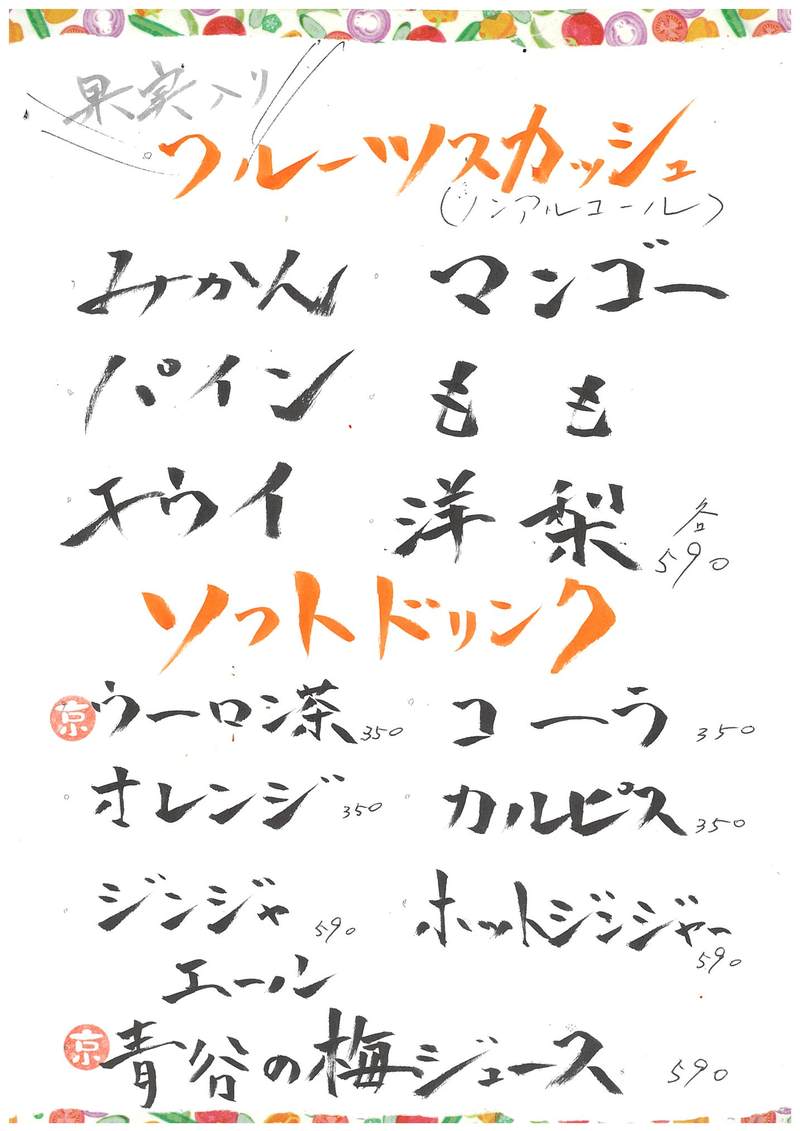 果実入り
フルーツスカッシュ
(ノンアルコール)
みかん マンゴー
パイン もも
キウイ 洋梨 各590
ソフトドリンク
京 ウーロン茶 350 コーラ 350
オレンジ 350 カルピス 350
ジンジャ 590 ホットジンジャー 590
エール
京 青谷の梅ジュース 590